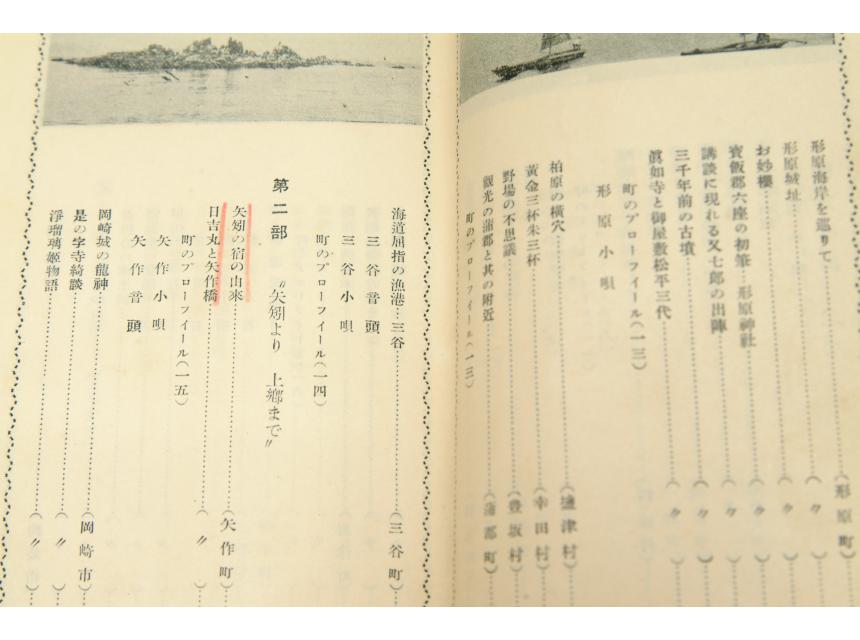 形原海岸を巡りて (形原町)
形原城址 (〃)
お妙櫻 (〃)
寳飯郡六座の初筆…形原神社 (〃)
講談に現れる又七郎の出陣 (〃)
三千年前の古墳 (〃)
眞如寺と御屋敷松平三代 (〃)
町のプローフイール(一三)
形原小唄
柏原の横穴 (鹽津村)
黄金三杯朱三杯 (幸田村)
野場の不思議 (豊坂村)
觀光の蒲郡と其の附近 (蒲郡町)
町のプローフイール(一三)
海道屈指の漁港…三谷 (三谷町)
三谷音頭
三谷小唄
町のプローフイール(一四)
第二部 〝矢矧より 上鄕まで〟
矢矧の宿の由來 (矢作町)
日吉丸と矢作橋 (〃)
町のプローフイール(一五)
矢作小唄
矢作音頭
岡崎城の龍神 (岡崎市)
是の字寺綺談 (〃)
淨瑠璃姬物語 (〃)